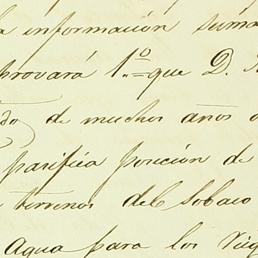 informacion suma
provará 1.º que D.
de muchos años
pacifica posicion de
terrenos del Sobaco
Agua para los